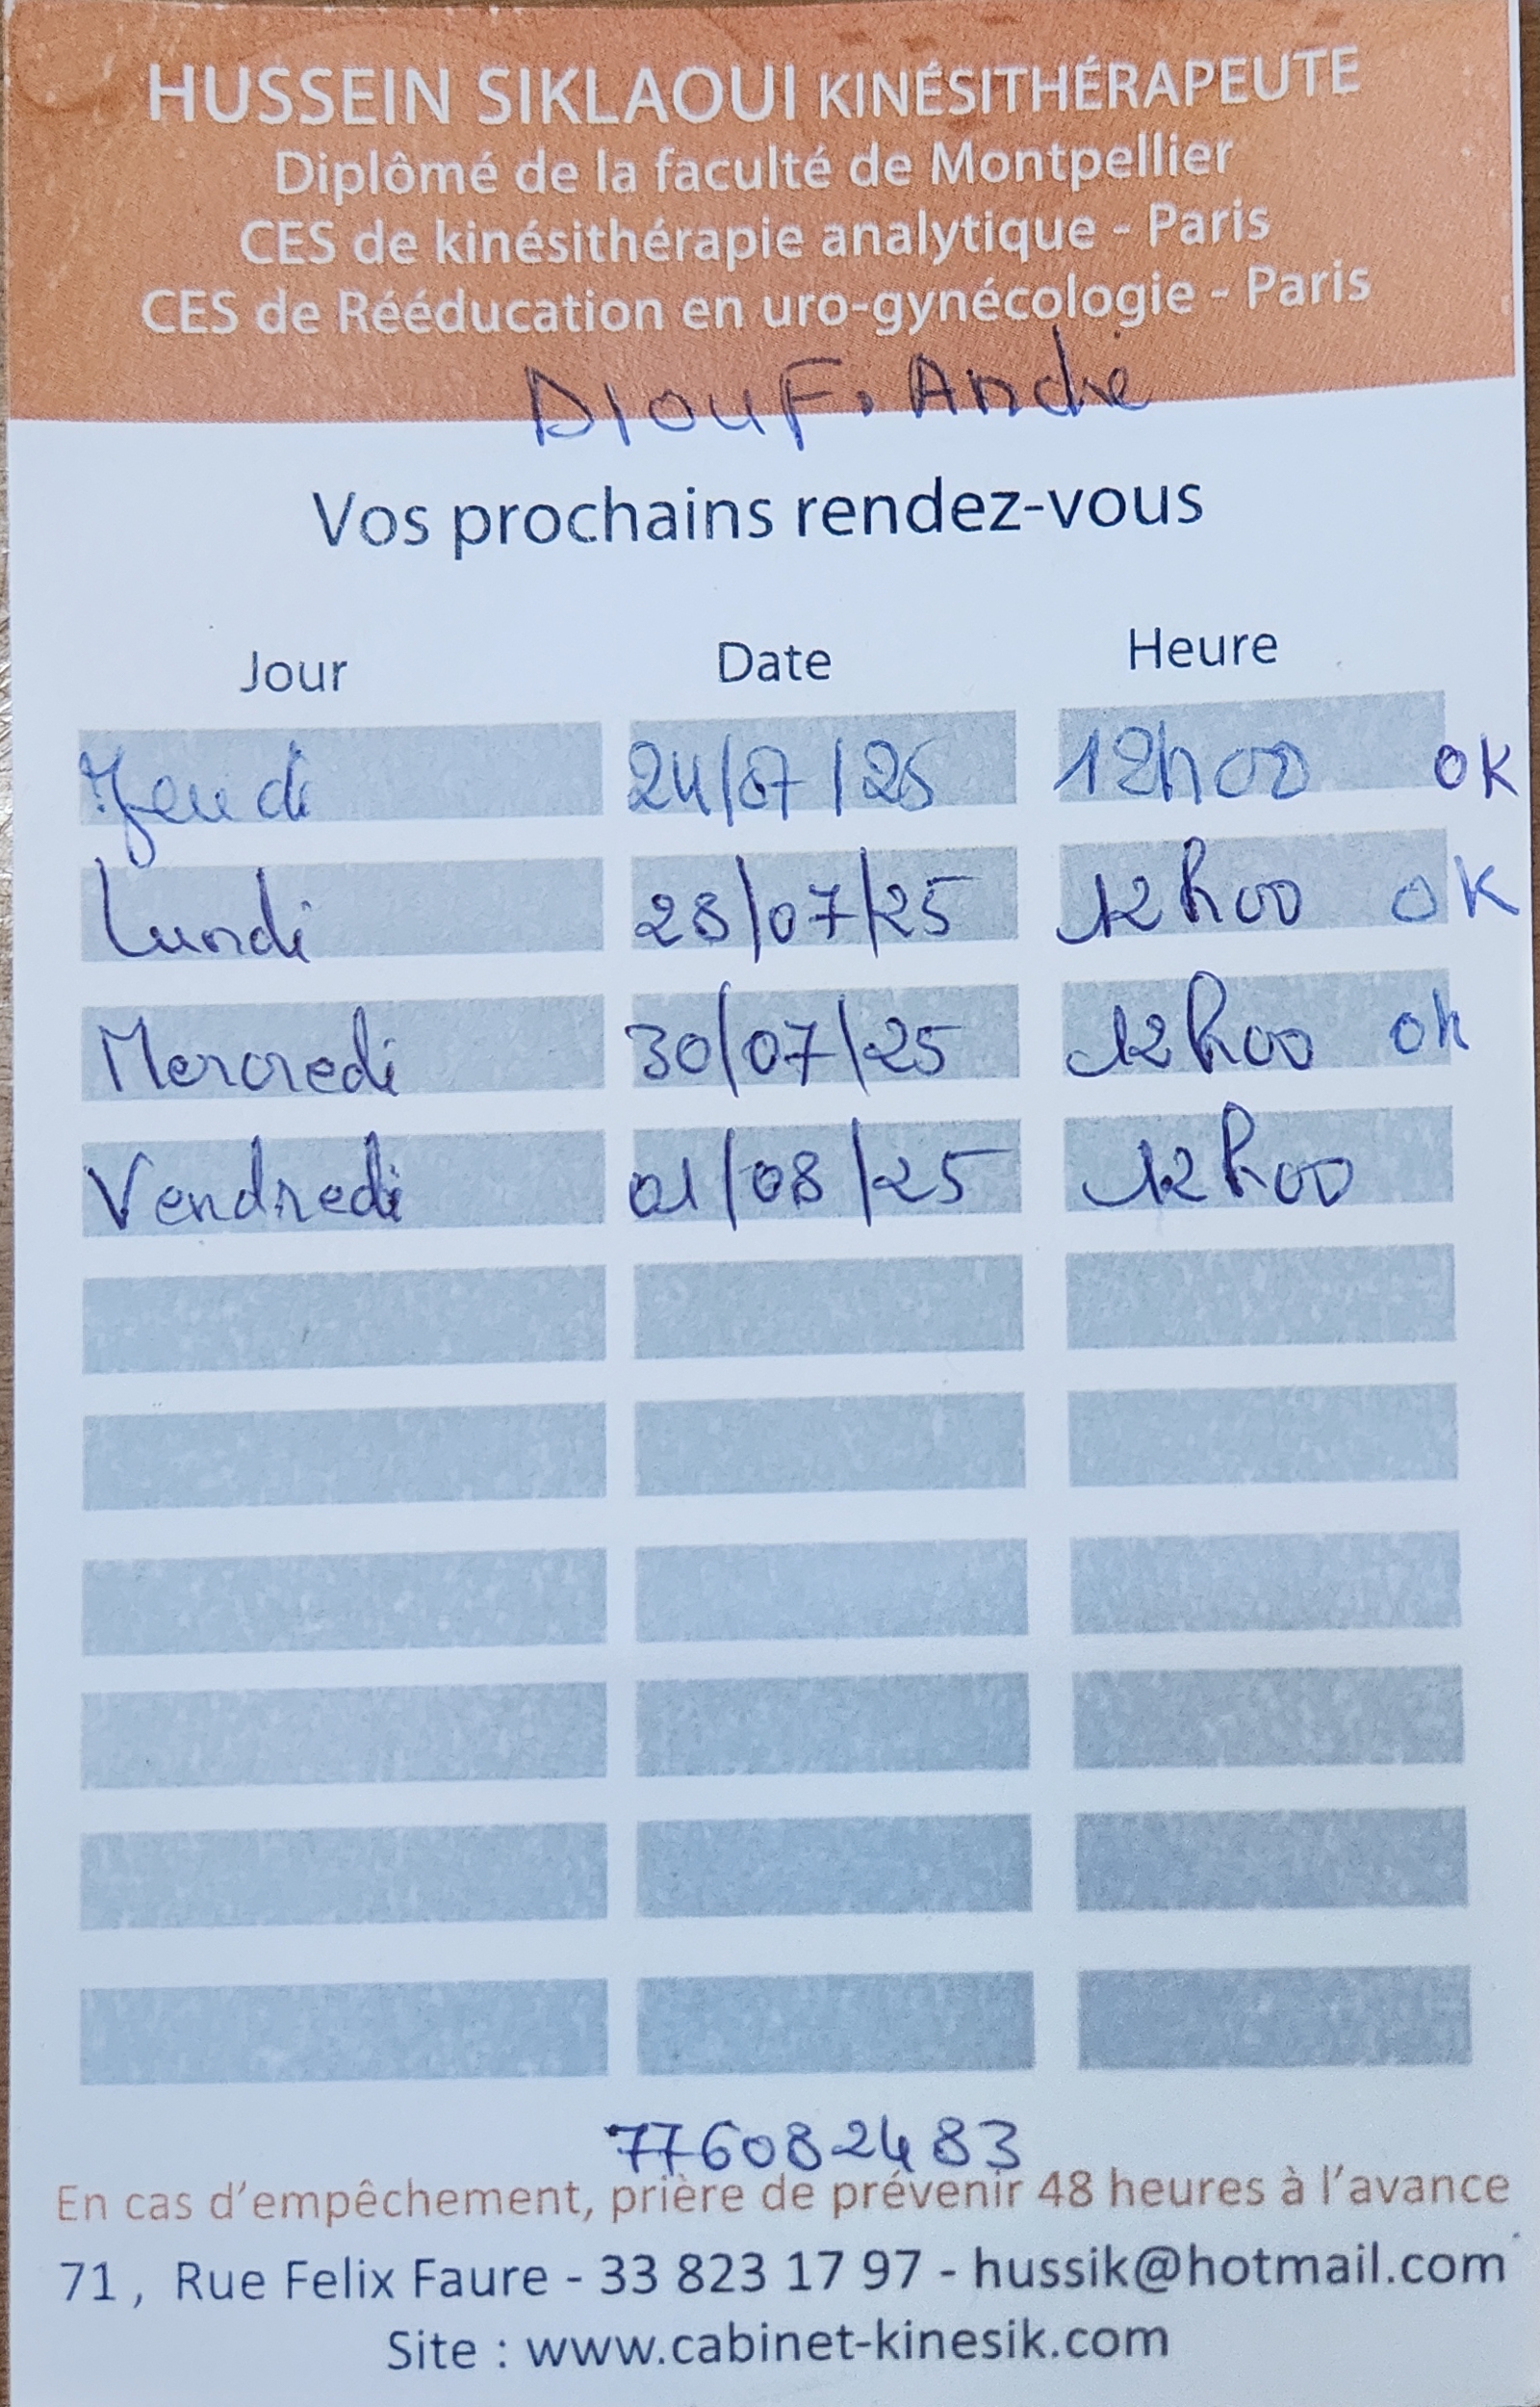 HUSSEIN SIKLAOUI KINÉSITHÉRAPEUTE
Diplômé de la faculté de Montpellier
CES de kinésithérapie analytique - Paris
CES de Rééducation en uro-gynécologie - Paris
DIOUF. André
Vos prochains rendez-vous
Jour Date Heure
Jeudi 24/07/25 12h00 OK
Lundi 28/07/25 12h00 OK
Mercredi 30/07/25 12h00 ok
Vendredi 01/08/25 12h00
776082483
En cas d'empêchement, prière de prévenir 48 heures à l'avance
71, Rue Felix Faure - 33 823 17 97 - hussik@hotmail.com
Site : www.cabinet-kinesik.com